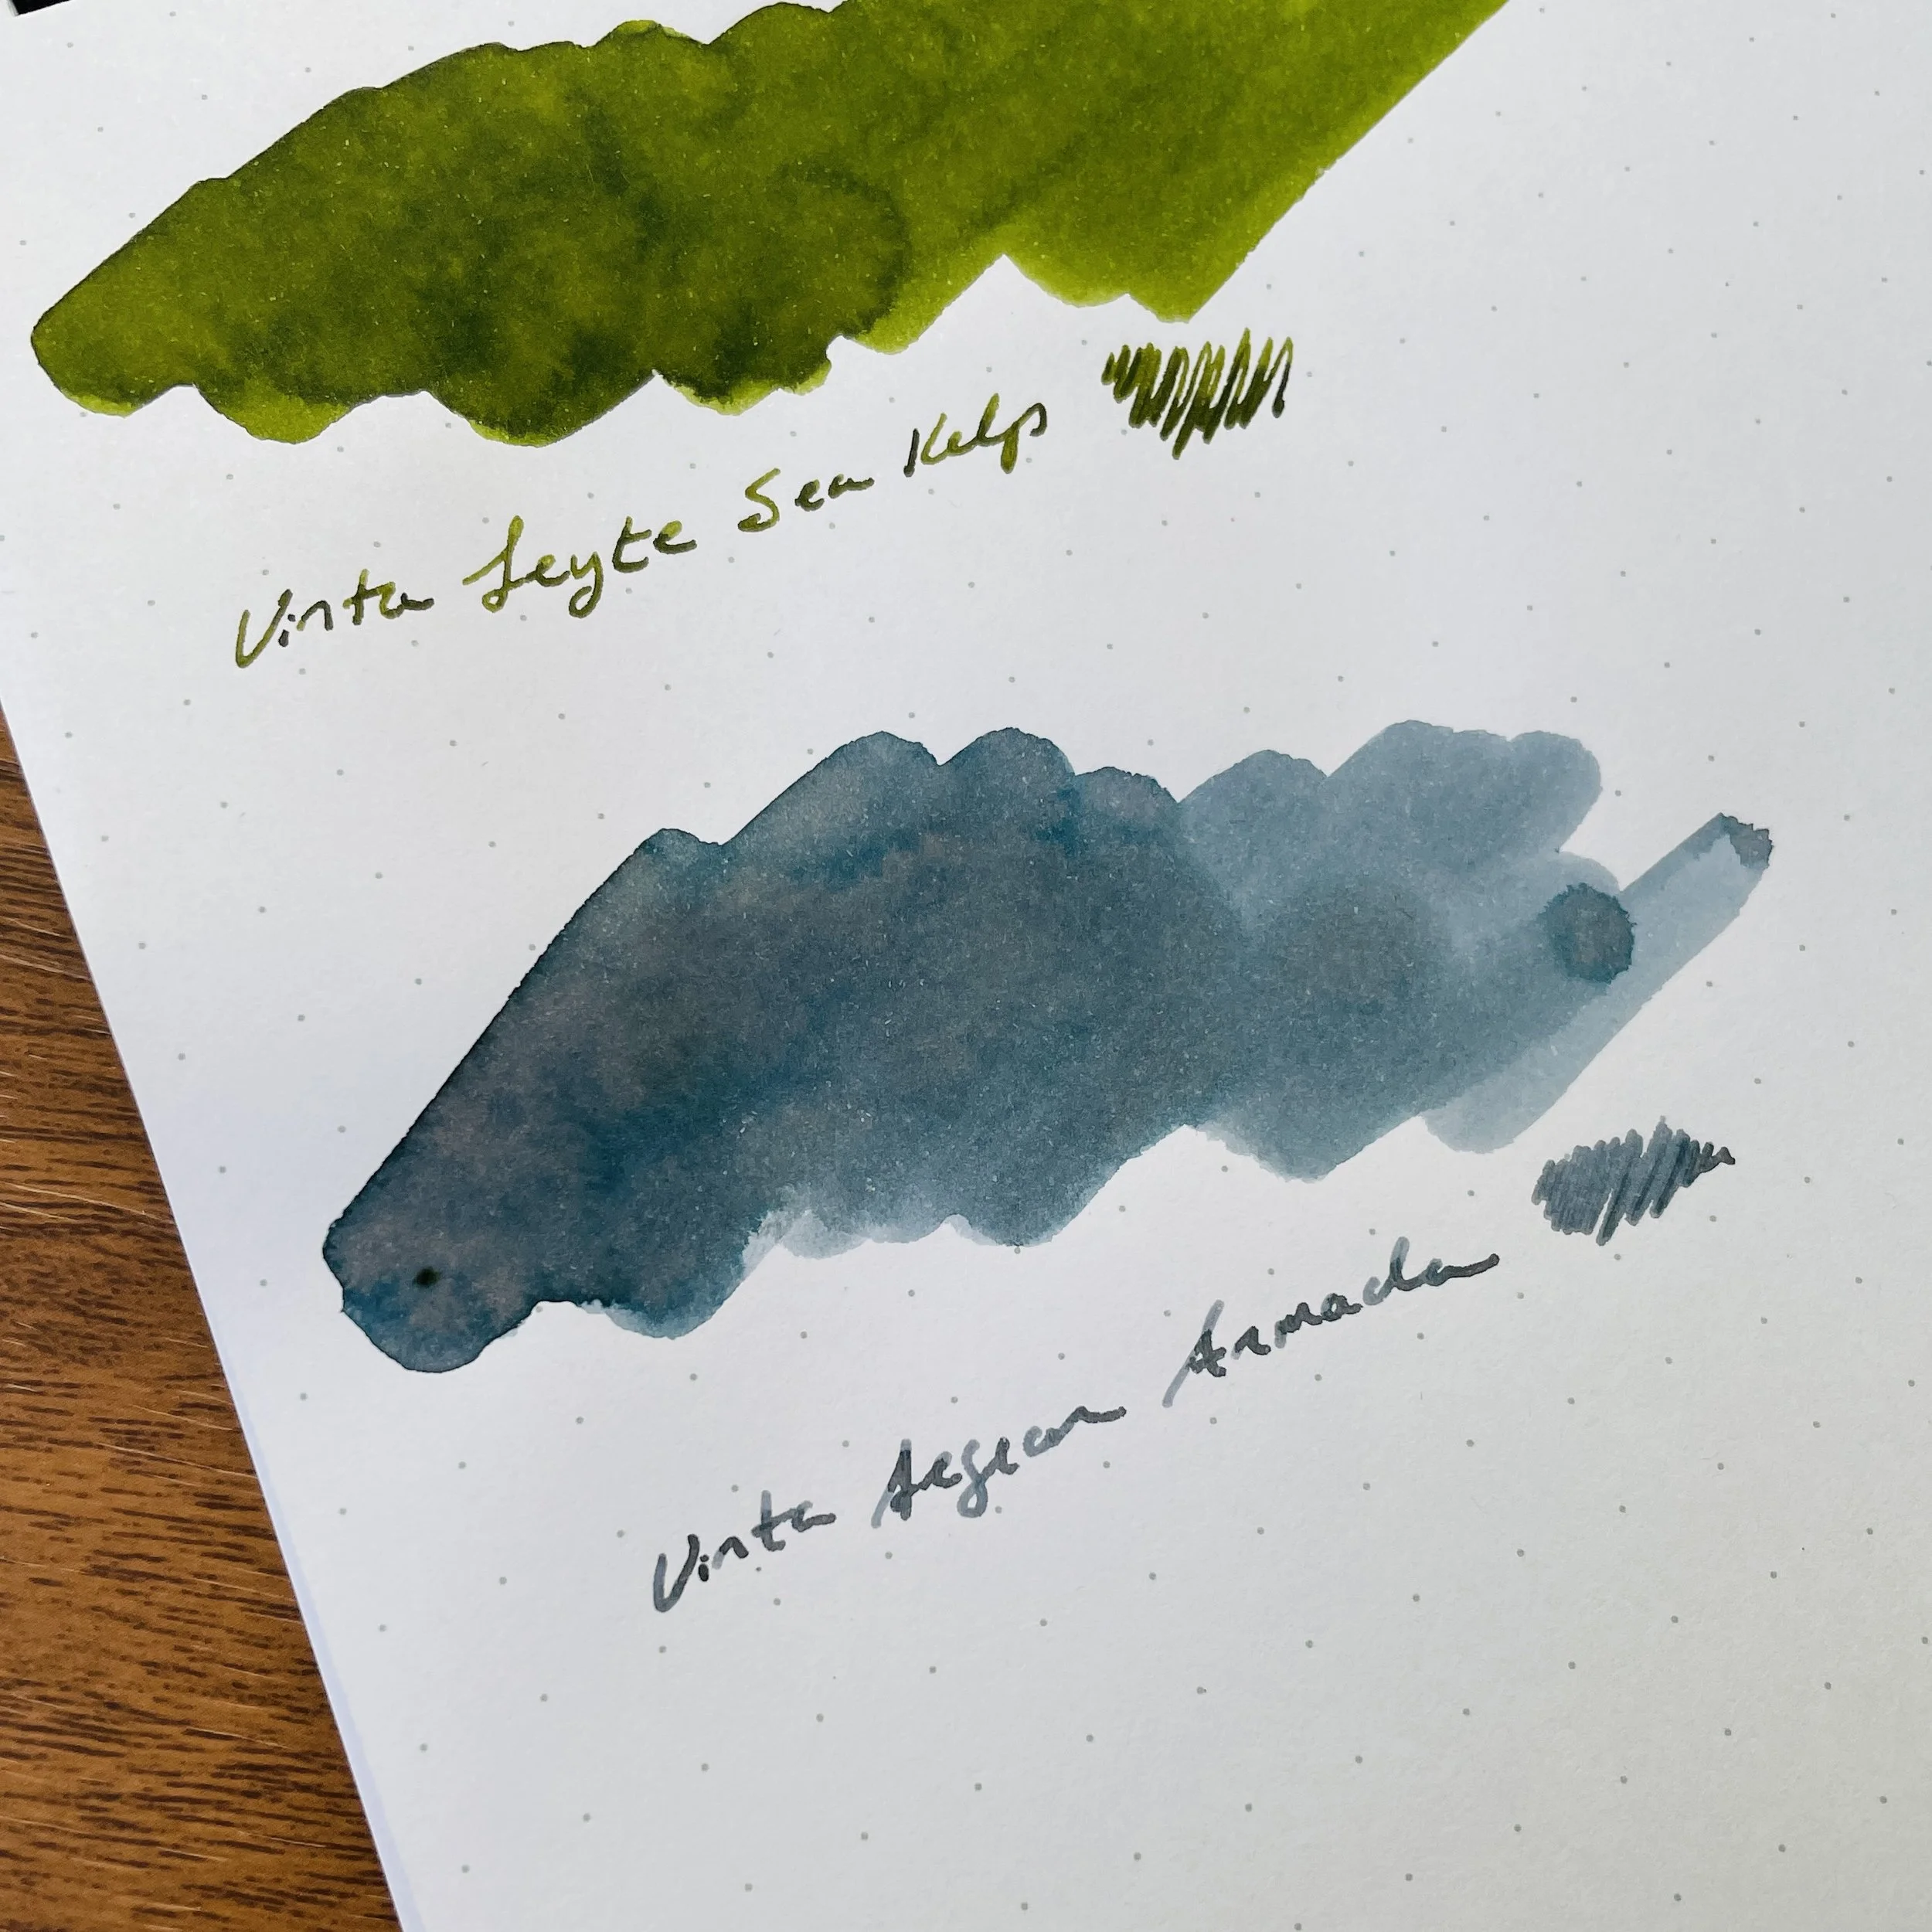 Vinta Leyte Sea Kelp
Vinta Aegean Armada